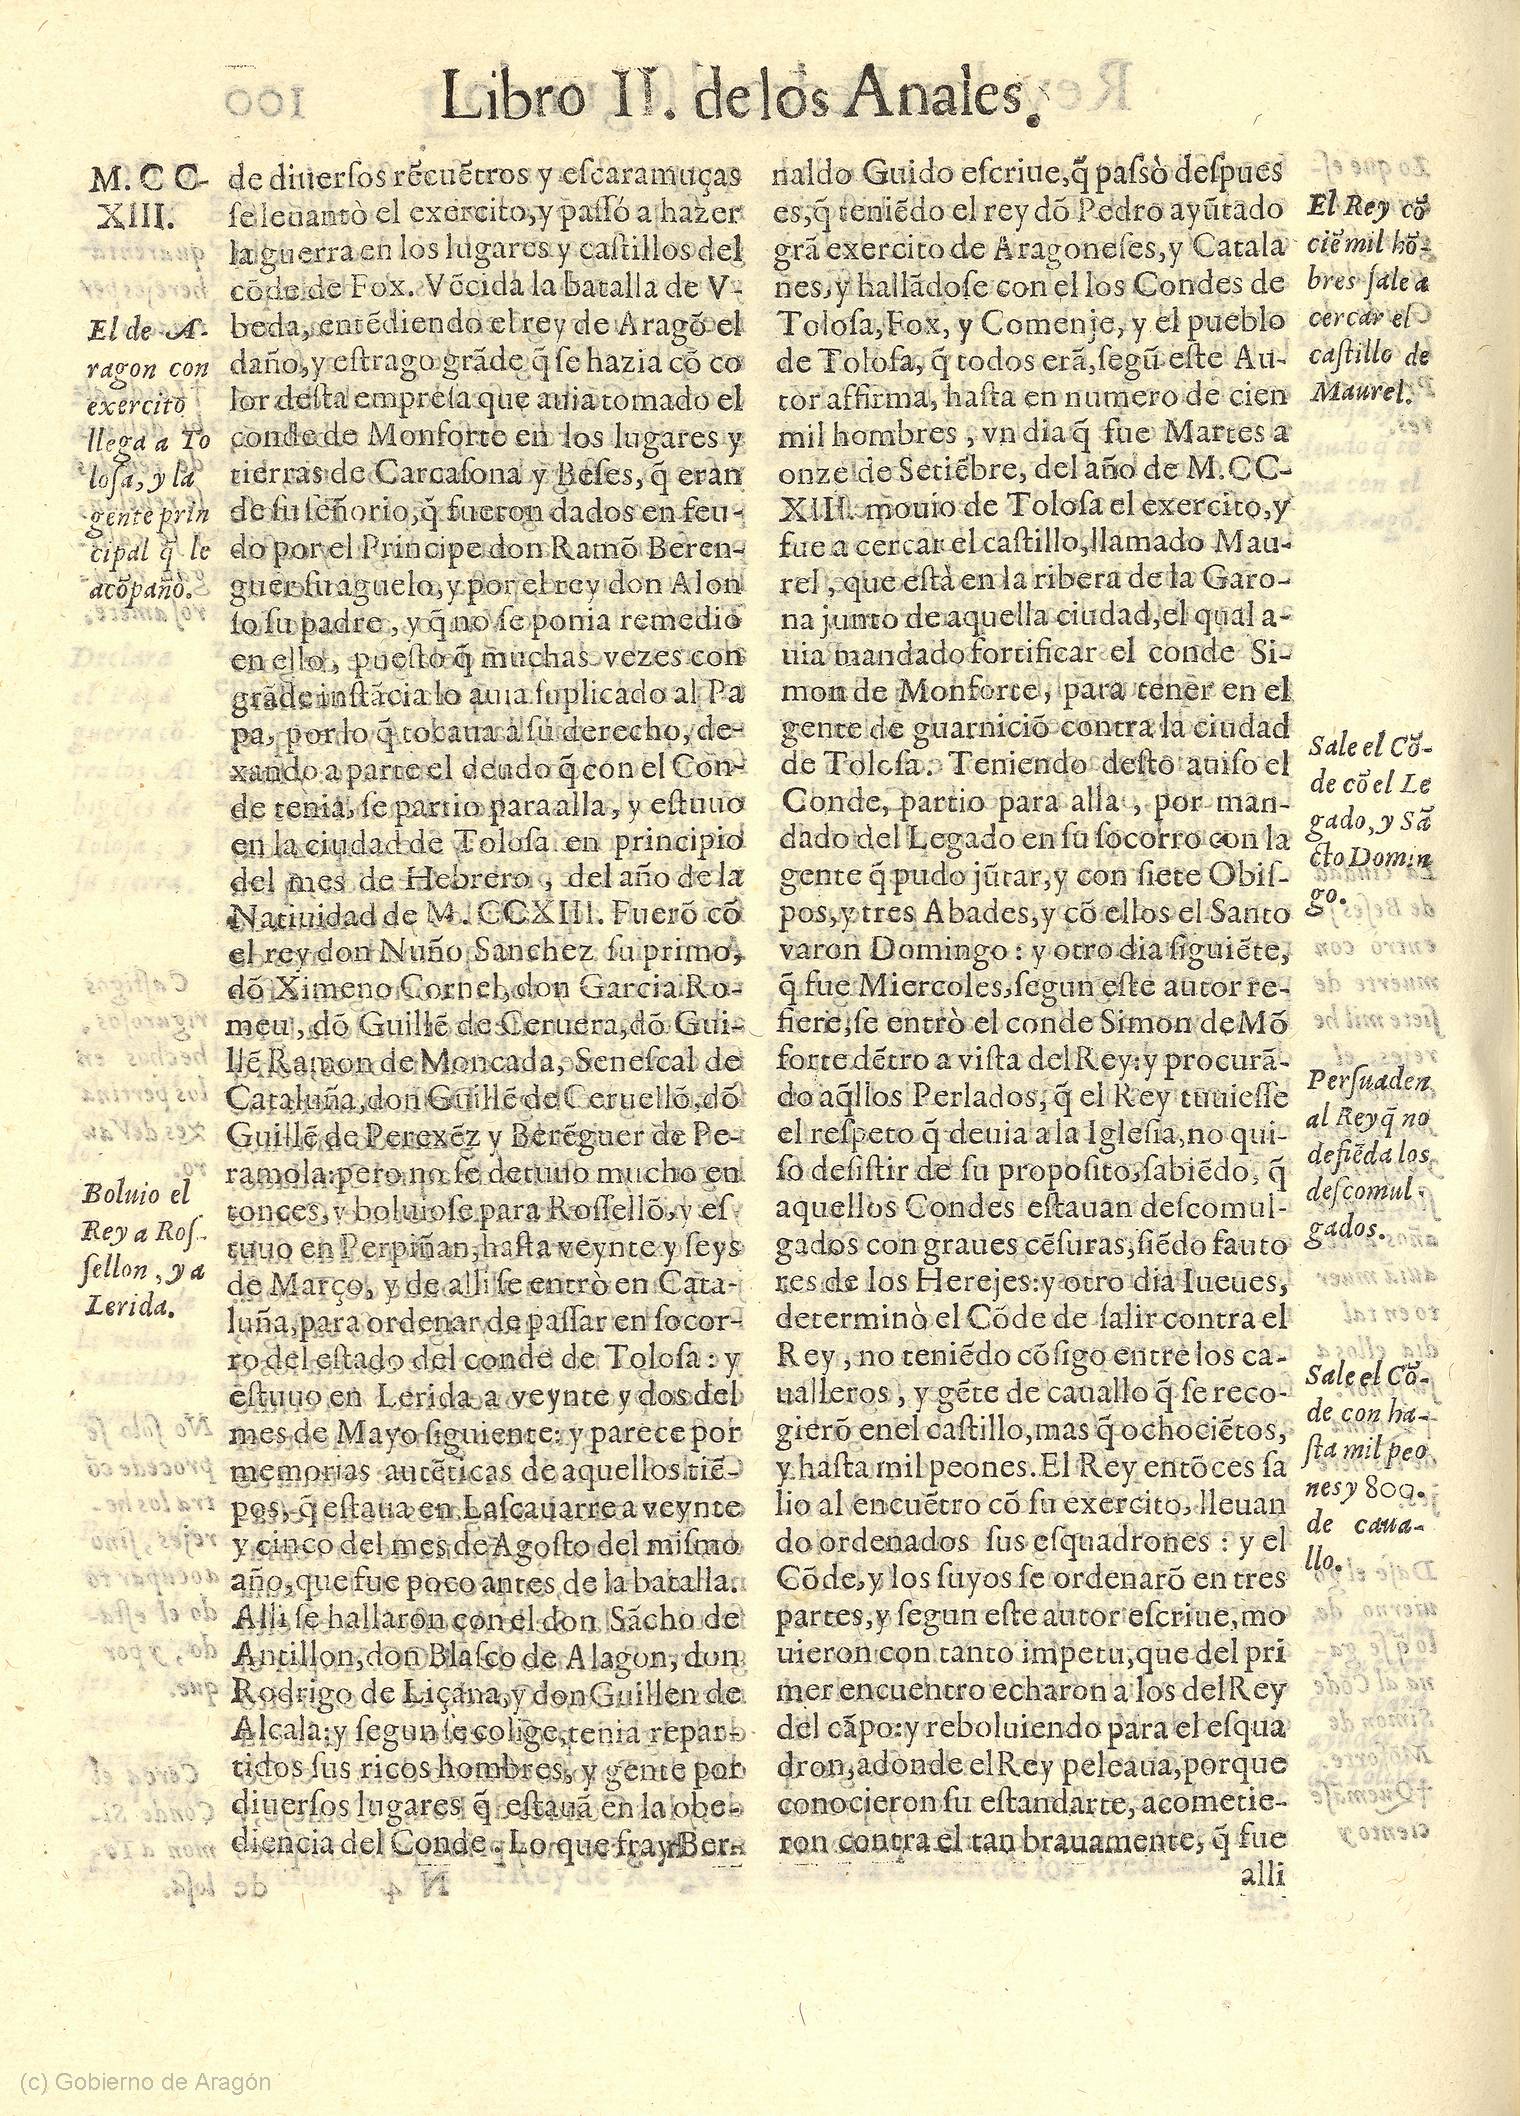 Libro II. de los Anales.
M. C C-
XIII.
El de A-
ragon con
exercito
llega a To
losa, y la
gente prin
cipal q̃ le
acõpañò.
Boluio el
Rey a Ros-
sellon, y a
Lerida.
de diuersos rẽcuẽtros y escaramuças
se leuantò el exercito, y passó a hazer
la guerra en los lugares y castillos del
cõde de Fox. Vẽcida la batalla de V-
beda, entẽdiendo el rey de Aragõ el
daño, y estrago grãde q̃ se hazia cõ co
lor desta empresa que auia tomado el
conde de Monforte en los lugares y
tierras de Carcasona y Beses, q̃ eran
de su señorio, q̃ fueron dados en feu-
do por el Principe don Ramõ Beren-
guer su aguelo, y por el rey don Alon
so su padre, y q̃ no se ponia remedio
en ello, puesto q̃ muchas vezes con
grãde instãcia lo auia suplicado al Pa
pa, por lo q̃ tocaua a su derecho, de-
xando a parte el deudo q̃ con el Con-
de tenia, se partio para alla, y estuuo
en la ciudad de Tolosa en principio
del mes de Hebrero, del año de la
Natiuidad de M. CCXIII. Fuerõ cõ
el rey don Nuño Sanchez su primo,
dõ Ximeno Cornel, don Garcia Ro-
meu, dõ Guillẽ de Ceruera, dõ Gui-
llẽ Ramon de Moncada, Senescal de
Cataluña, don Guillẽ de Ceruellõ, dõ
Guillẽ de Perexẽz y Berẽguer de Pe-
ramola: pero no se detuuo mucho en
tonces, y boluiose para Rossellõ, y es
tuuo en Perpiñan, hasta veynte y seys
de Março, y de alli se entrò en Cata-
luña, para ordenar de passar en socor-
ro del estado del conde de Tolosa: y
estuuo en Lerida a veynte y dos del
mes de Mayo siguiente: y parece por
memorias autẽticas de aquellos tiẽ-
pos, q̃ estaua en Lascauarre a veynte
y cinco del mes de Agosto del mismo
año, que fue poco antes de la batalla.
Alli se hallaron con el don Sãcho de
Antillon, don Blasco de Alagon, don
Rodrigo de Liçana, y don Guillen de
Alcala: y segun se colige, tenia repar-
tidos sus ricos hombres, y gente por
diuersos lugares q̃ estauã en la obe-
diencia del Conde. Lo que fray Ber-
naldo Guido escriue, q̃ passò despues
es, q̃ teniẽdo el rey dõ Pedro ayũtado
grã exercito de Aragoneses, y Catala
nes, y hallãdose con el los Condes de
Tolosa, Fox, y Comenje, y el pueblo
de Tolosa, q̃ todos erã, segũ este Au-
tor affirma, hasta en numero de cien
mil hombres, vn dia q̃ fue Martes a
onze de Setiẽbre, del año de M.CC-
XIII. mouio de Tolosa el exercito, y
fue a cercar el castillo, llamado Mau-
rel, que està en la ribera de la Garo-
na junto de aquella ciudad, el qual a-
uia mandado fortificar el conde Si-
mon de Monforte, para tener en el
gente de guarniciõ contra la ciudad
de Tolosa. Teniendo desto auiso el
Conde, partio para alla, por man-
dado del Legado en su socorro con la
gente q̃ pudo jũtar, y con siete Obis-
pos, y tres Abades, y cõ ellos el Santo
varon Domingo: y otro dia siguiẽte,
q̃ fue Miercoles, segun este autor re-
fiere, se entrò el conde Simon de Mõ
forte dẽtro a vista del Rey: y procurã-
do aq̃llos Perlados, q̃ el Rey tuuiesse
el respeto q̃ deuia a la Iglesia, no qui-
so desistir de su proposito, sabiẽdo, q̃
aquellos Condes estauan descomul-
gados con graues cẽsuras, siẽdo fauto
res de los Herejes: y otro dia Iueues,
determinò el Cõde de salir contra el
Rey, no teniẽdo cõsigo entre los ca-
ualleros, y gẽte de cauallo q̃ se reco-
gierõ en el castillo, mas q̃ ochociẽtos,
y hasta mil peones. El Rey entõces sa
lio al encuẽtro cõ su exercito, lleuan
do ordenados sus esquadrones: y el
Cõde, y los suyos se ordenarõ en tres
partes, y segun este autor escriue, mo
uieron con tanto impetu, que del pri
mer encuentro echaron a los del Rey
del cãpo: y reboluiendo para el esqua
dron, adonde el Rey peleaua, porque
conocieron su estandarte, acometie-
ron contra el tan brauamente, q̃ fue
alli
El Rey cõ
ciẽ mil hõ-
bres sale a
cercar el
castillo de
Maurel.
Sale el Cõ-
de cõ el Le
gado, y Sã
cto Domin
go.
Persuaden
al Rey q̃ no
defiẽda los
descomul-
gados.
Sale el Cõ-
de con ha-
sta mil peo
nes y 800.
de caua-
llo.
(c) Gobierno de Aragón